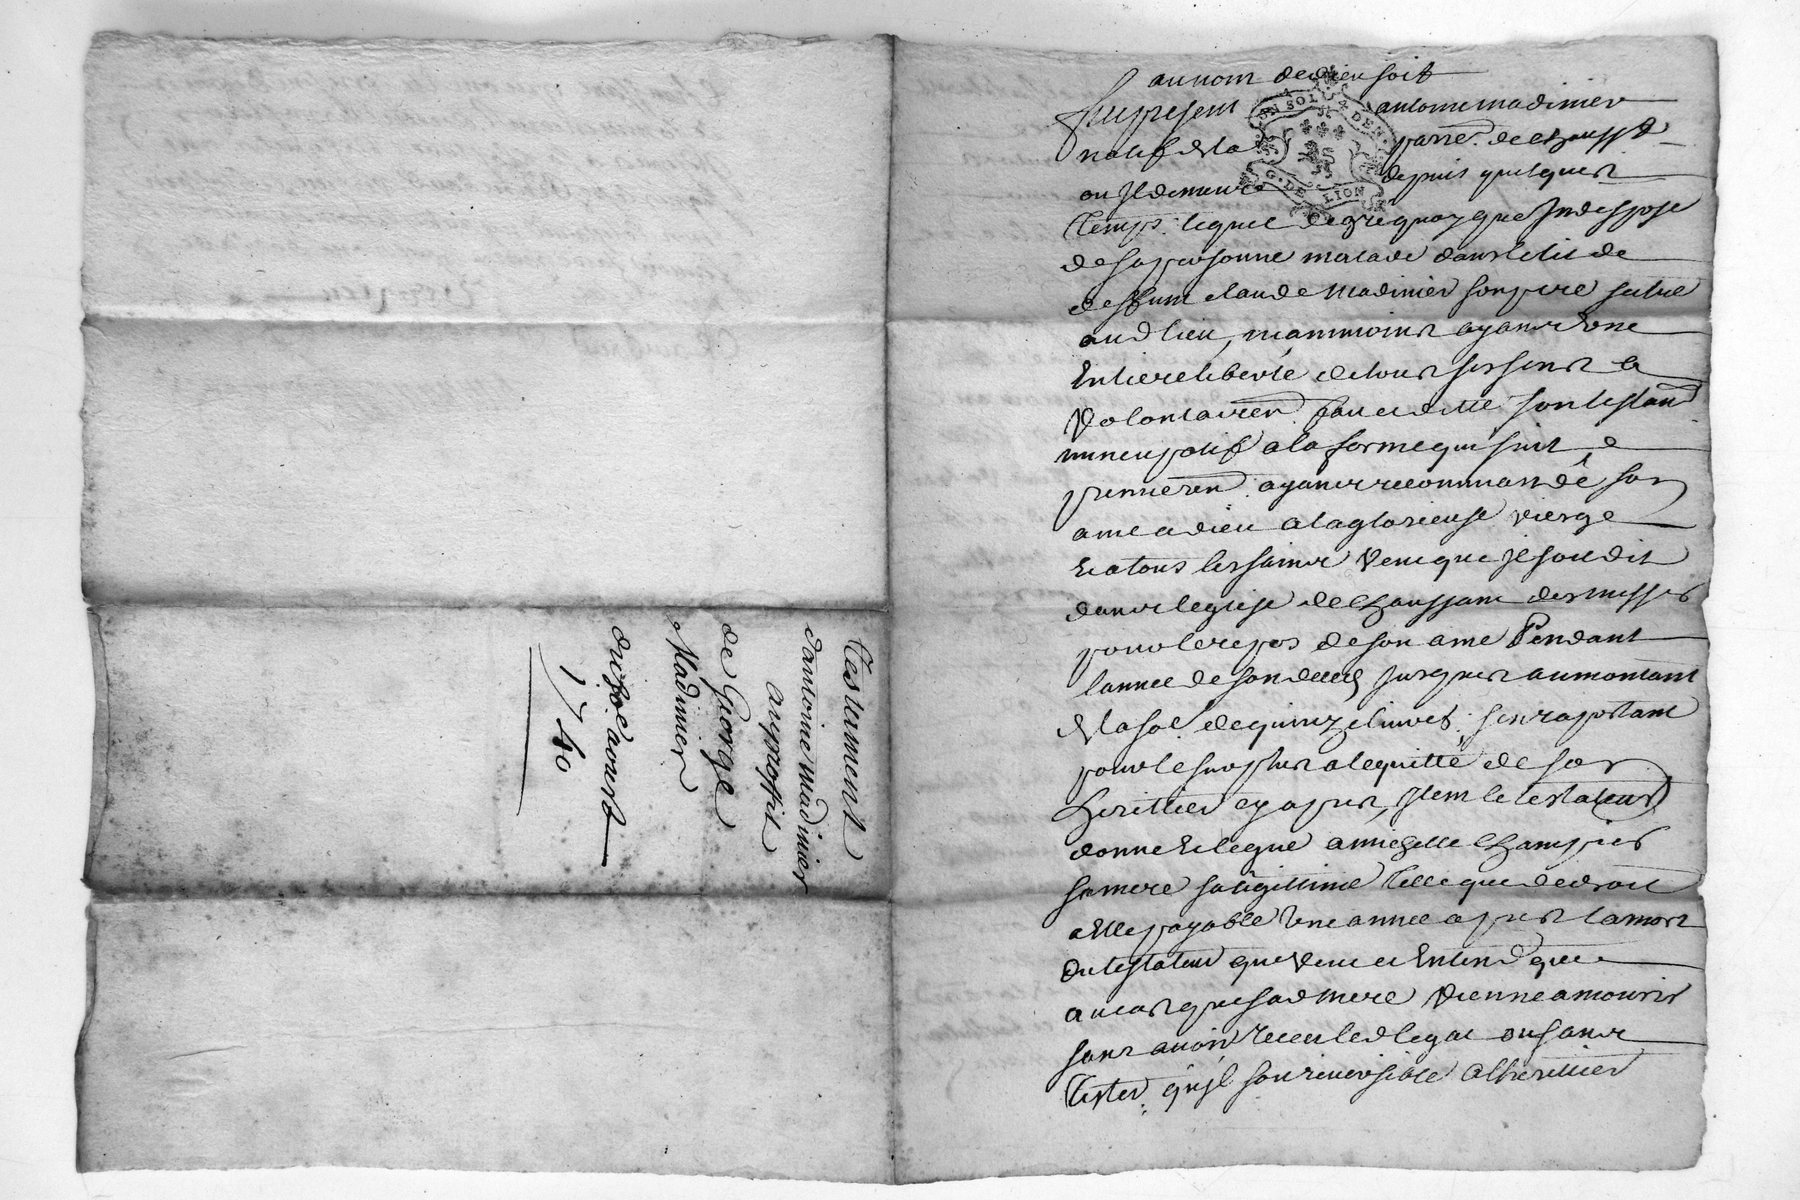 au nom de dieu soit
fut present antoine madinier
natif de la parre. de chaussan
ou Jl demeure depuis quelques
temps. lequel de gré quoy que Jndispose
de sa personne malade dans le lit de
deffunt claude Madinier son pere scitué
aud lieu, nammoins ayant Une
Entiere liberté de tous ses sens a
Volontairem faict dicté son testam
nuncupatif a la forme qui suit, e
premierem ayant recommandé son
ame a dieu a la glorieuse vierge
Et a tous les saints Veut que Jl soit dit
dans leglise de chaussant des messes
pour le repos de son ame Pendant
lannee de son deces Jusques au montant
de la so.e de quinze livres, s'en raportant
pour le surplus a lequitté de son
heritier cy apres, Jtem le testateur
donne Et legue a michelle champier
sa mere sa legittime telle que de droit
a Elle payable Une annee apres la mort
du testateur que Veut et Entend que
au cas que sad mere Vienne a mourir
sans avoir receu led legat ou sans
tester. qu'Jl soit reversible a lheritier
Testament
dantoine madinier
au proffit
de George
Madinier
du 30e aoust
1740
UN SOL 4 DEN.
G. DE LION